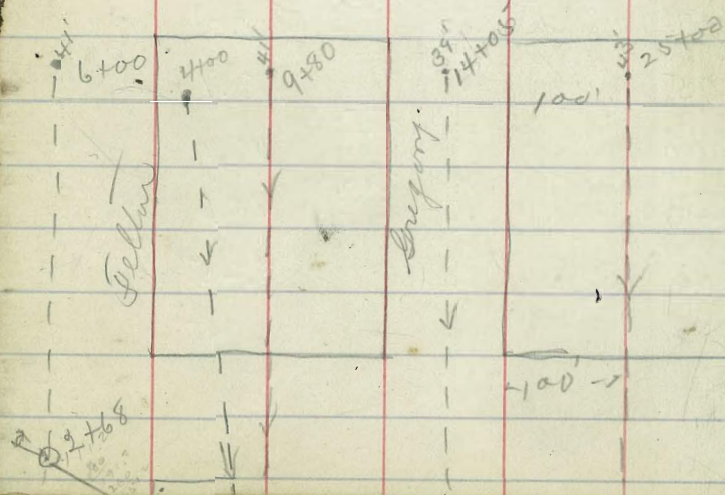 41'
6+00
4+00
41'
9+80
39'
14+05
43'
25+00
100'
Gregory
100'
2+68